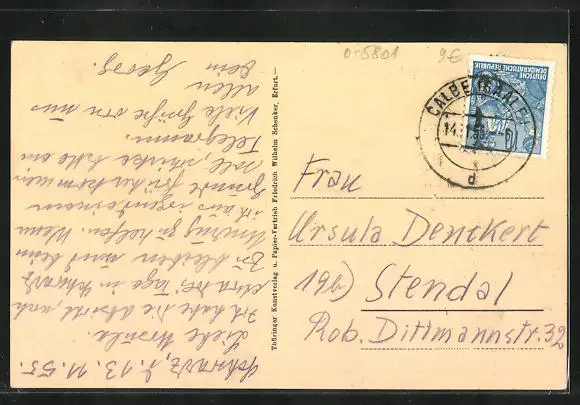 Schwarz, d. 13. 11. 55.
Liebe Ursula.
Ich habe die Absicht, noch
etwa drei Tage in Schwarz
zu bleiben und beim
Umzug zu helfen. Wenn
ich aus irgendeinem
Grunde früher kommen
soll, schicke bitte ein
Telegramm.
Viele Grüße von uns
allen
Dein Georg.
Thüringer Kunstverlag u. Papier-Vertrieb Friedrich Wilhelm Schenker, Erfurt.—
0-5801
9€
DEUTSCHE
DEMOKRATISCHE REPUBLIK
CALBE (SAALE)
14.11.55
d
Frau
Ursula Denckert
19b) Stendal
Rob. Dittmannstr. 32